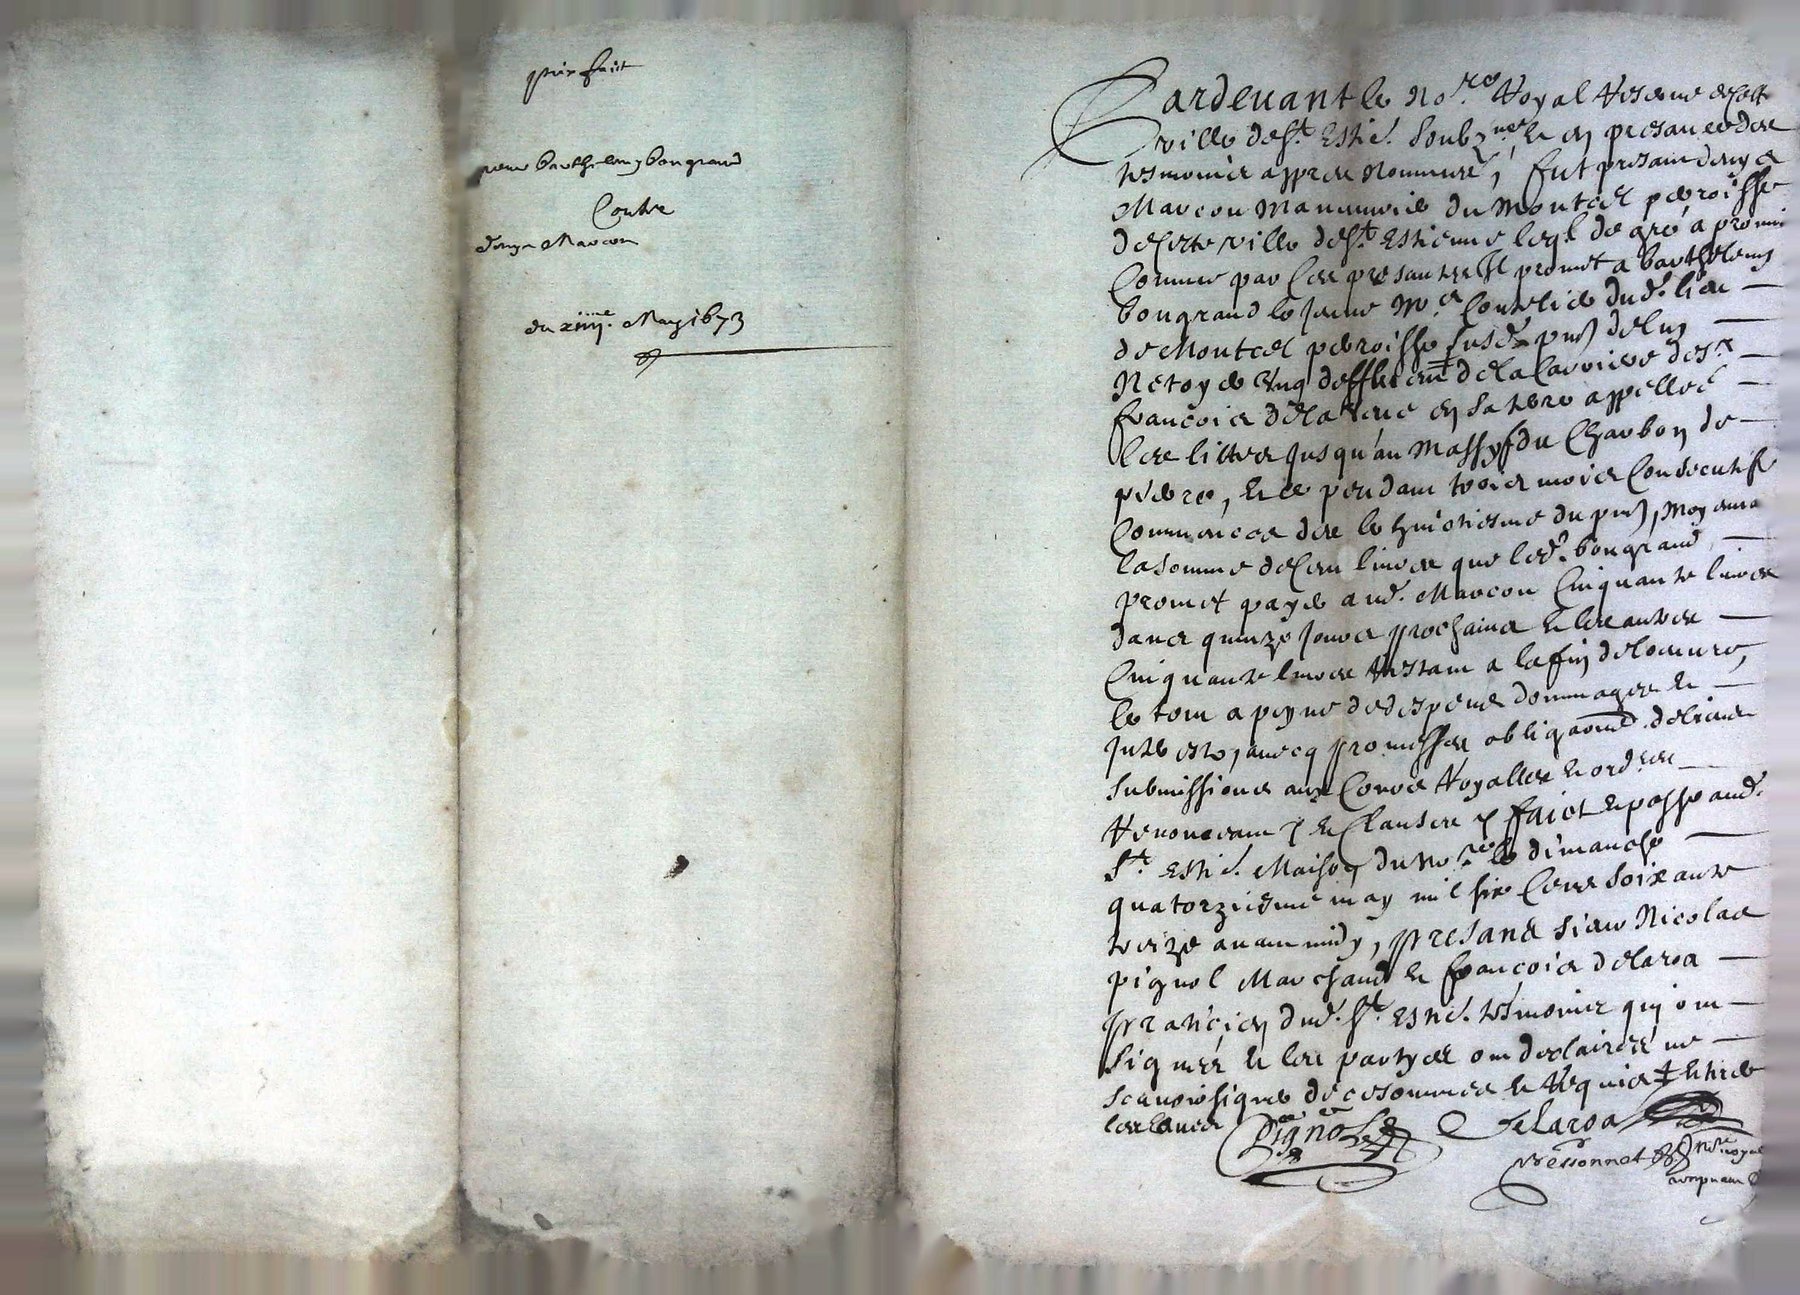 prix faict
pour barthelemy bongrand
Contre
denys Marcou
du xiiii.me May 1673
Pardevant le No.re Royal Reservé de cette
ville de S.t Estie. soubz.né et en presance des
tesmoins appres nommés, fut presant denys
Marcou manuvrier du Montcel parroisse
de cette ville de S.t Estienne leql. de gré a promis
Comme par ces presantes Il promet a barthelemy
bongrand le jeune M.e Coutelier dud. lieu
de Montcel parroisse susd. pnt de luy
Netoyer Cinq de la Carriere de S.r
françois en sa terre appellée
les littes jusqu'au massyf du Charbon de
pierre, et ce pendant trois mois Consecutifs
Commences des le huictiesme du pnt, moyenna
la somme de Cent livres que led. bongrand
promet payer aud. Marcou Cinquante livres
dans quinze jours prochains et les autres
Cinquante livres restant a la fin de loeuvre,
le tout a peyne de despens dommages et
Interests, avecq promesses obligaons de biens
submissions aux Cours Royalles et ord.res
Renonceans et Clauses faict et passé aud.
S.t Estie. Maison du no.re le dimanche
quatorziesme may mil six Cens soixante
treize avant midy, presans sieur Nicolas
pignol Marchand et françois delaroa
praticien dud. S.t Estie. tesmoins qui ont
signés et les partyes ont declairés ne
scavoir signer de ce sommées et Requises
Pignol Delaroa
Bessonnet No.re royal